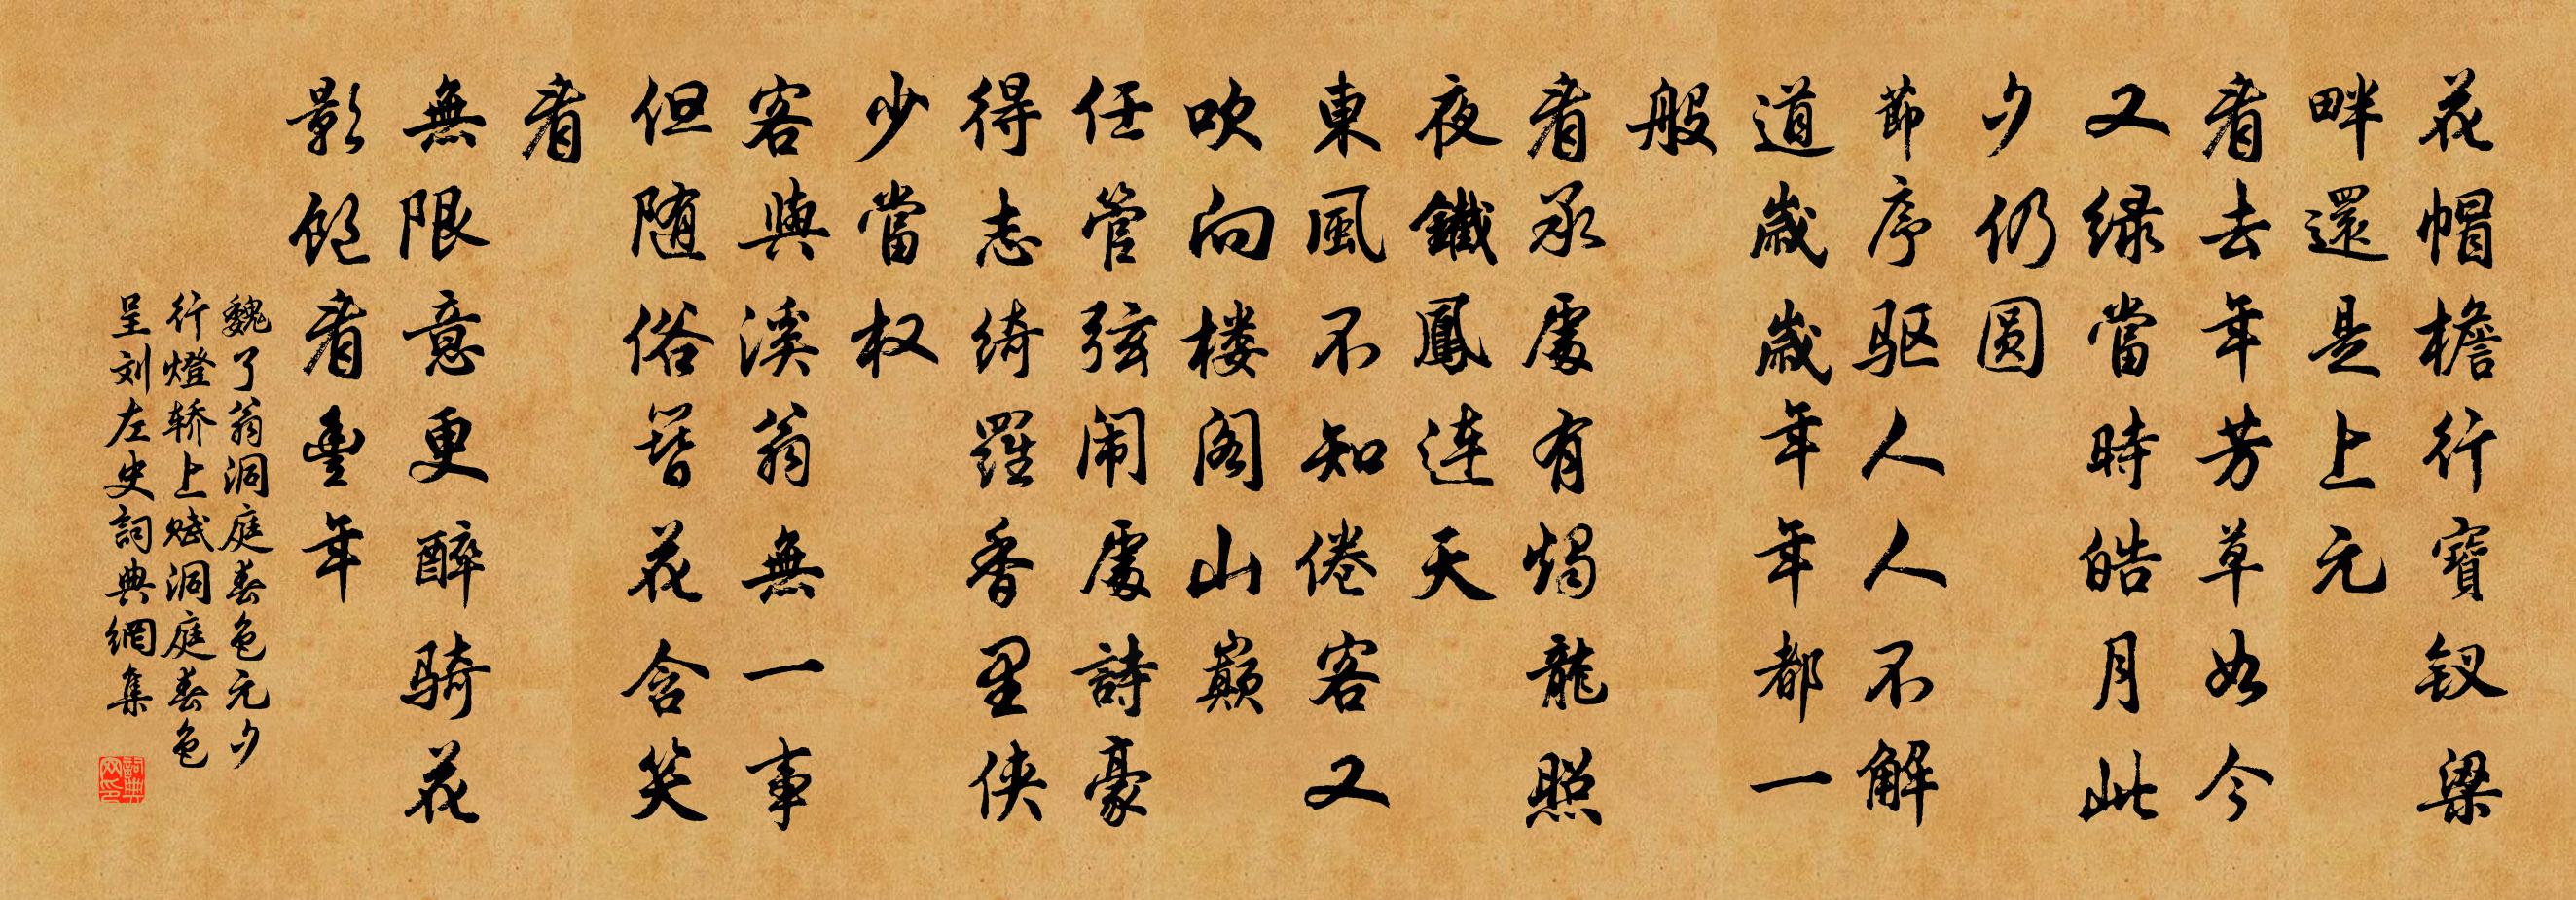 花帽檐行寶钗梁
畔還是上元
看去年芳草如今
又绿當時皓月此
夕仍圆
節序驱人人不解
道歲歲年年都一
般
看承處有燭龍照
夜鐵鳳连天
東風不知倦客又
吹向楼阁山巅
任管弦闹處詩豪
得志绮羅香里侠
少當权
客與溪翁無一事
但随俗簪花含笑
看
無限意更醉骑花
影飽看豐年
魏了翁洞庭春色元夕
行燈轿上赋洞庭春色
呈刘左史詞典網集
詞典网印